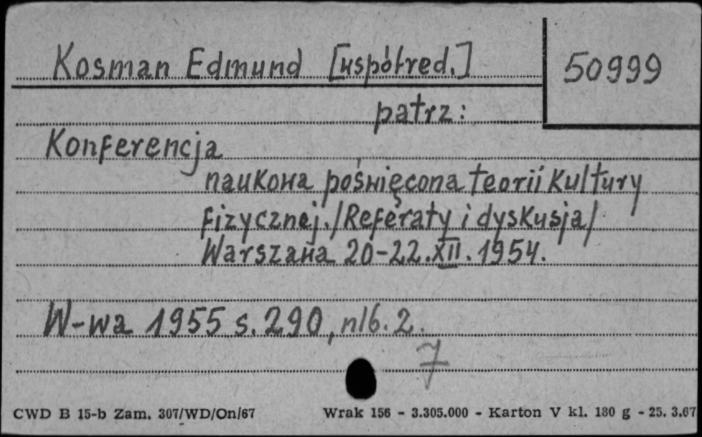 Kosman Edmund [współred.]
50999
patrz:
Konferencja
naukowa poświęcona teorii Kultury
fizycznej. /Referaty i dyskusja/
Warszawa 20-22.XII.1954.
W-wa 1955 s. 290, nlb. 2.
7
CWD B 15-b Zam. 307/WD/On/67 Wrak 156 - 3.305.000 - Karton V kl. 180 g - 25. 3.67